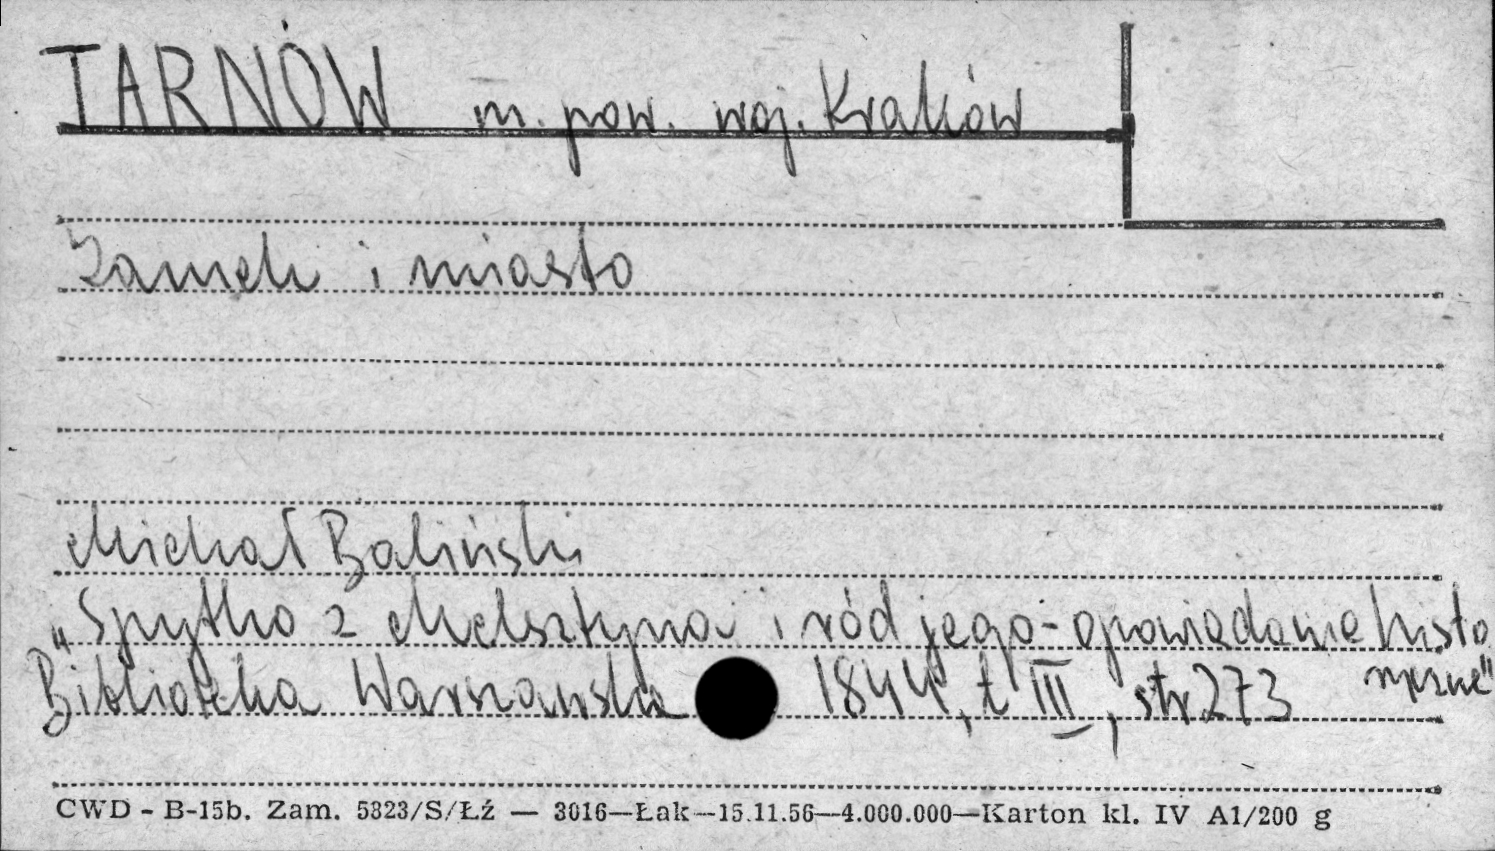 TARNÓW m. pow. woj. Kraków
Zamek i miasto
Michał Baliński
„Spytko z Melsztyna i ród jego - opowiadanie histo
ryczne"
Biblioteka Warszawska 1844, t III, str 273
CWD - B-15b. Zam. 5323/S/Łź — 3016—Łak—15.11.56—4.000.000—Karton kl. IV A1/200 g